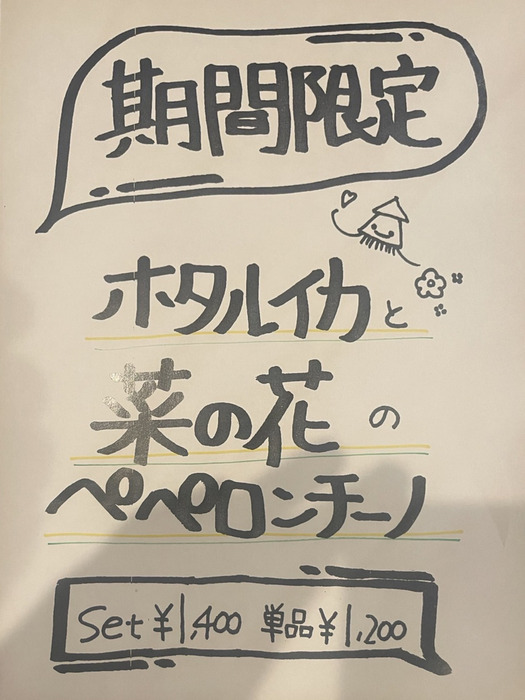 期間限定
ホタルイカと
菜の花の
ペペロンチーノ
Set ¥1,400 単品 ¥1,200